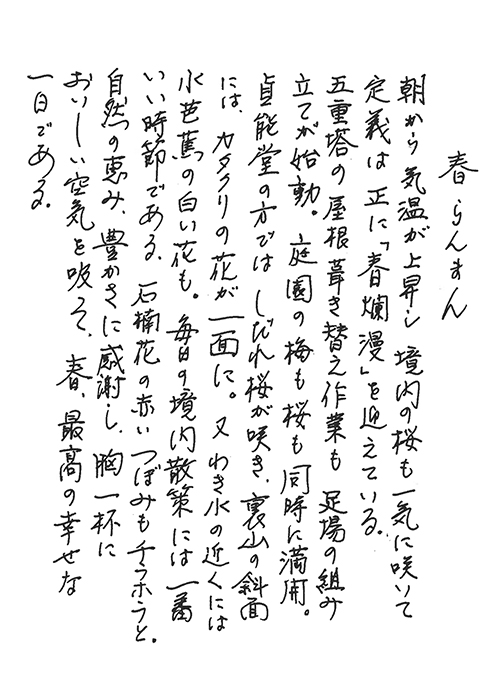 春らんまん
朝から気温が上昇し境内の桜も一気に咲いて
定義は正に「春爛漫」を迎えている。
五重塔の屋根葺き替え作業も足場の組み
立てが始動。庭園の梅も桜も同時に満開。
貞能堂の方ではしだれ桜が咲き、裏山の斜面
には、カタクリの花が一面に。又わき水の近くには
水芭蕉の白い花も。毎日の境内散策には一番
いい時節である、石楠花の赤いつぼみもチラホラと。
自然の恵み、豊かさに感謝し、胸一杯に
おいしい空気を吸って、春、最高の幸せな
一日である。